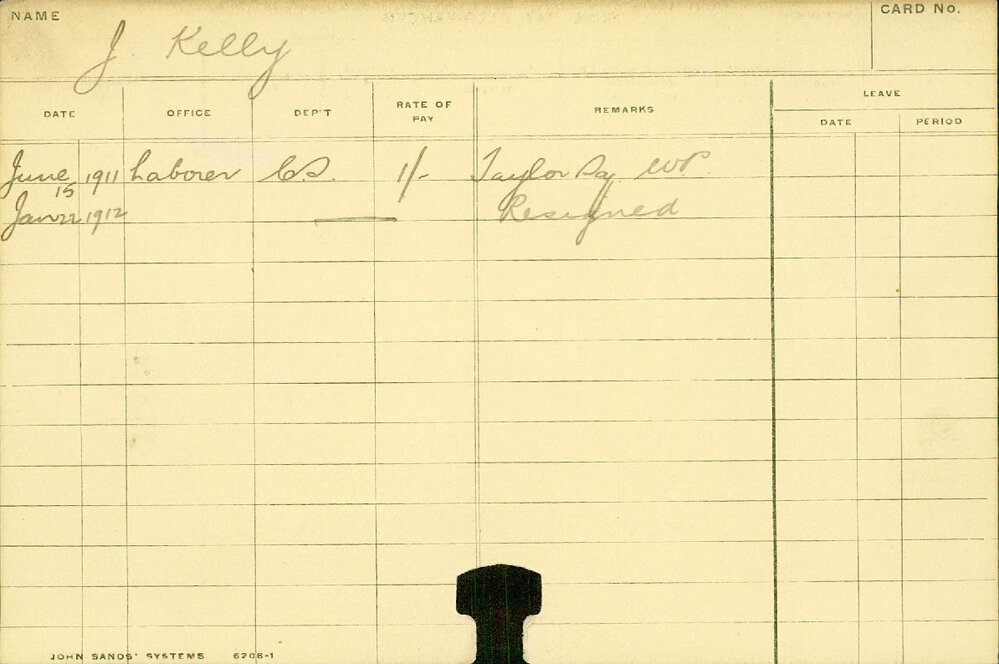 NAME
CARD No.
J Kelly
DATE OFFICE DEP'T RATE OF PAY REMARKS LEAVE
DATE PERIOD
June 15 1911 Laborer C.S. 1/- Taylor Sq. WP.
Jan 22 1912 Resigned
JOHN SANDS' SYSTEMS 6206-1